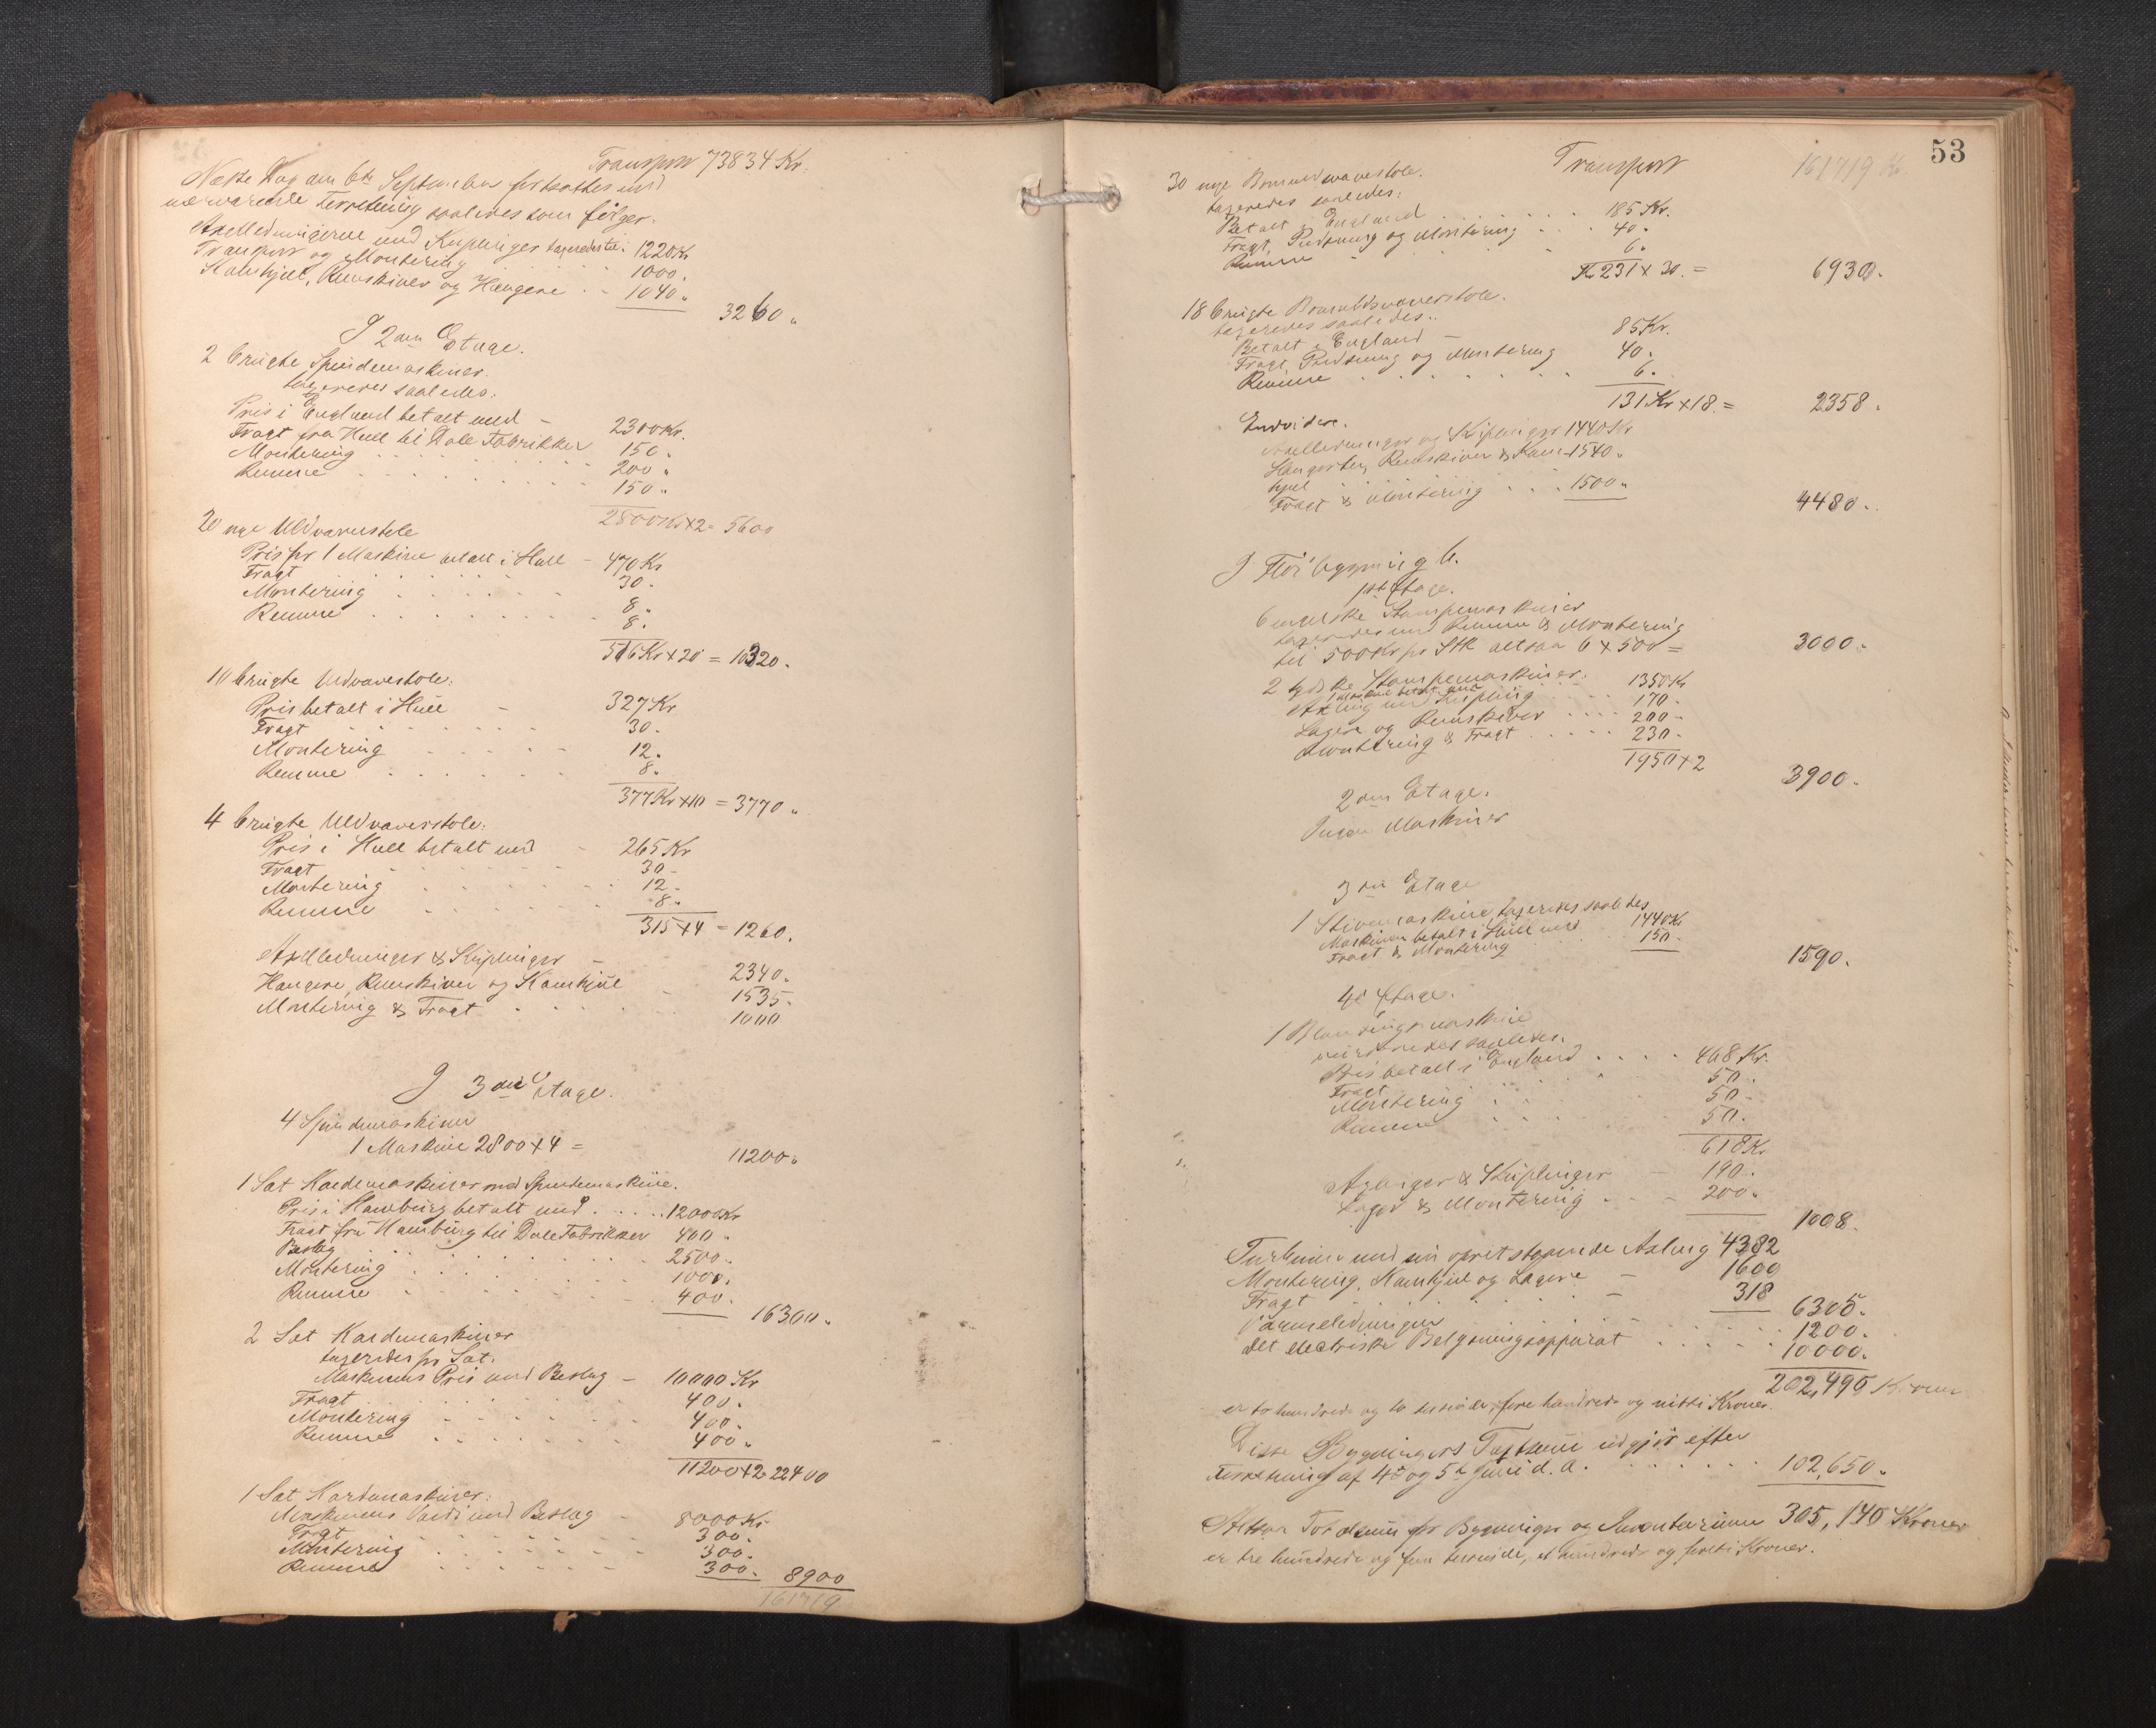 Transport 73834 Kr.
Næste Dag den 6te September fortsattes med
nærværende Forretning saaledes som følger.
Axelledningerne med Kuplinger taxeredes til: 1220 Kr
Transport og Montering 1000.
Kamhjul, Remskiver og Hængere . . 1040 „
3260 „
I 2den Etage.
2 brugte Spindemaskiner.
taxeredes saaledes.
Pris i England betalt med – 2300 Kr.
Fragt fra Hull til Dale Fabrikker 150 „
Montering 200 „
Remme 150 „
2800 Kr × 2 = 5600
20 nye Uldvæverstole
Pris pr 1 Maskine betalt i Hull – 470 Kr
Fragt 30.
Montering 8.
Remme 8.
516 Kr × 20 = 10320.
10 brugte Uldvæverstole.
Pris betalt i Hull – 327 Kr
Fragt 30.
Montering 12.
Remme 8.
377 Kr × 10 = 3770 „
4 brugte Uldvæverstole.
Pris i Hull betalt med – 265 Kr
Fragt 30 –
Montering 12 –
Remme 8 „
315 × 4 = 1260.
Axelledninger & Kuplinger – 2340.
Hængere, Remskiver og Kamhjul – 1535.
Montering & Fragt 1000
I 3die Etage.
4 Spindemaskiner
1 Maskine 2800 × 4 = 11200 „
1 Sat Kardemaskiner med Spindemaskine.
Pris i Hamburg betalt med . . . . 12000 Kr
Fragt fra Hamburg til Dale Fabrikker 400 „
Beslag 2500 –
Montering 1000.
Remme 400.
16300 „
2 Sat Kardemaskiner
taxeredes pr Sat.
Maskinens Pris med Beslag – 10000 Kr
Fragt 400.
Montering 400.
Remme 400 „
11200 × 2 = 22400
1 Sat Kardemaskiner.
Maskinens Værdi med Beslag – 8000 Kr
Fragt 300.
Montering 300.
Remme 300. 8900
161719
53
Transport 161719 Kr.
30 nye Bomuldsvæverstole.
taxeredes saaledes.
Betalt i England 185 Kr.
Fragt, Pudsning og Montering 40.
Remme 6.
Kr 231 × 30. = 6930.
18 brugte Bomuldsvæverstole.
taxeredes saaledes.
Betalt i England – 85 Kr.
Fragt, Pudsning og Montering 40.
Remme 6.
131 Kr × 18. = 2358.
Endvidere.
Axelledninger og Kuplinger 1440 Kr
Hængerter, Remskiver & Kam- 1540 „
hjul
Fragt & Montering . . . 1500 „
4480 .
I Fløibygning b.
1ste Etage.
6 engelske Stampemaskiner
taxeredes med Remme & Montering
til 500 Kr pr Stk altsaa 6 × 500 = 3000.
2 tydske Stampemaskiner.
1 Maskine betalt med 1350 Kr
Axling med Kupling 170.
Lagere og Remskiver 200 –
Montering & Fragt 230.
1950 × 2
3900.
2den Etage.
Ingen Maskiner
3die Etage
1 Stivemaskine, taxeredes saaledes
Maskinen betalt i Hull med 1440 Kr
Fragt & Montering 150 –
1590.
4de Etage.
1 Blandingsmaskine
vurderedes saaledes.
Pris betalt i England . . . . 468 Kr.
Fragt 50.
Montering 50 –
Remme 50.
618 Kr
Axlinger & Kuplinger – 190.
Lager & Montering . . – 200.
1008.
Turbinen med sin opretstaaende Axling 4382
Montering, Kamhjul og Lagere – 1600
Fragt 318
6305.
Varmeledningen 1200.
Det electriske Belysningsapparat 10000.
202,490 Kroner
er to hundrede og to tusinde, fire hundrede og nitti Kroner.
Disse Bygningers Taxtsum udgjør efter
Forretning af 4de og 5te Juni d. A. 102,650 „
Altsaa Totalsum for Bygninger og Inventarium 305,140 Kroner
er tre hundrede og fem tusinde, et hundrede og førti Kroner.